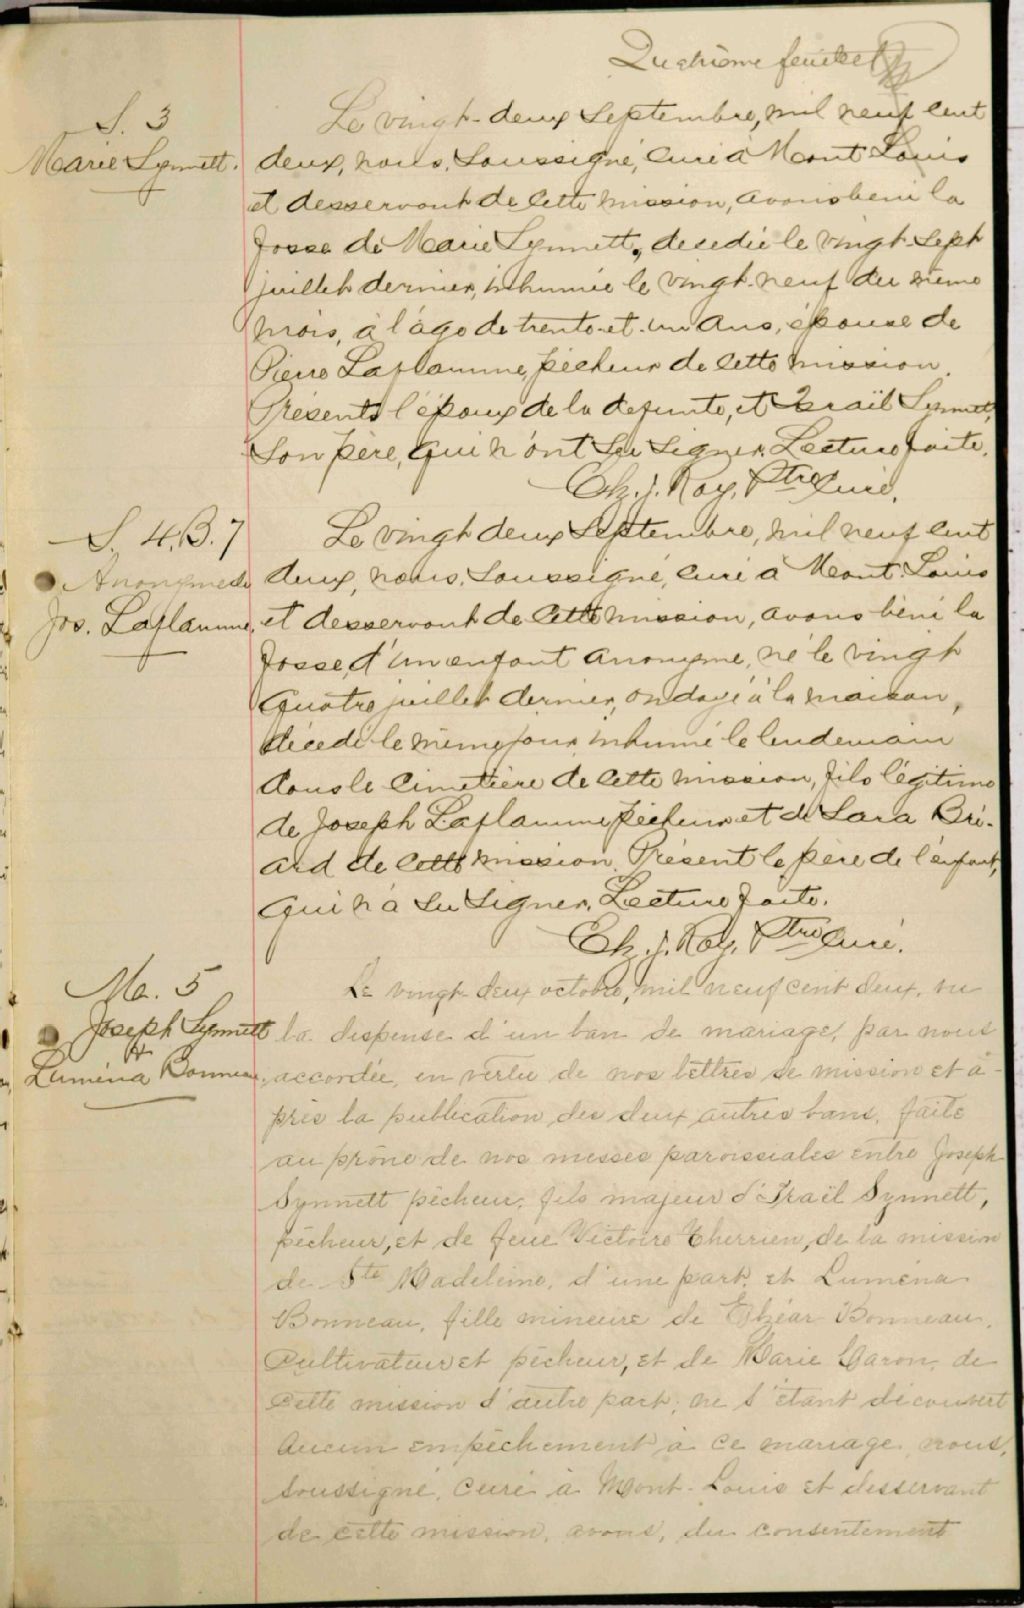 Quatrième feuillet
S. 3
Marie Synnett.
Le vingt-deux Septembre, mil neuf cent
deux, nous, Soussigné, Curé à Mont Louis
et desservant de cette mission, avons béni la
fosse de Marie Synnett, décédée le vingt-sept
juillet dernier, inhumée le vingt-neuf du même
mois, à l'âge de trente-et-un ans, épouse de
Pierre Laflamme, pêcheur de cette mission.
Présents l'époux de la defunte, et Israïl Synnett,
Son père, qui n'ont su signer. Lecture faite.
Ez. J. Roy, Ptre Curé.
S. 4, B. 7
Anonyme de
Jos. Laflamme.
Le vingt deux Septembre, mil neuf cent
deux, nous, Soussigné, Curé à Mont. Louis
et desservant de cette mission, avons béni la
fosse, d'un enfant anonyme, né le vingt
quatre juillet dernier, ondoyé à la maison,
décédé le même jour, inhumé le lendemain
dans le Cimetière de cette mission, fils légitime
de Joseph Laflamme pêcheur et de Sara Bri-
ard de cette mission. Présent le père de l'enfant,
qui n'a su signer. Lecture faite.
Ez. J. Roy, Ptre Curé.
Ma. 5
Joseph Synnett
&
Luména Bonneau.
Le vingt-deux octobre, mil neuf cent deux, vu
la dispense d'un ban de mariage, par nous
accordée, en vertu de nos lettres de mission et a-
près la publication des deux autres bans, faite
au prône de nos messes paroissiales entre Joseph
Synnett pêcheur, fils majeur d'Israïl Synnett,
pêcheur, et de feue Victoire Therrien, de la mission
de Ste Madeleine, d'une part, et Luména
Bonneau, fille mineure de Elzéar Bonneau,
Cultivateur et pêcheur, et de Marie Caron, de
cette mission d'autre part; ne s'étant découvert
aucun empêchement à ce mariage, nous,
soussigné, Curé à Mont-Louis et desservant
de cette mission, avons, du consentement